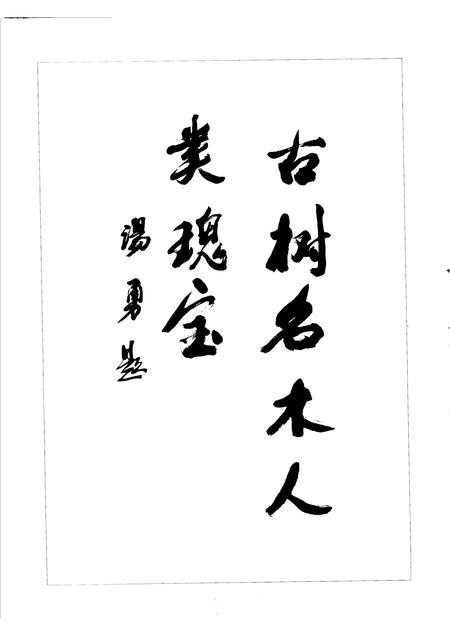 古树名木人
类瑰宝
汤勇题